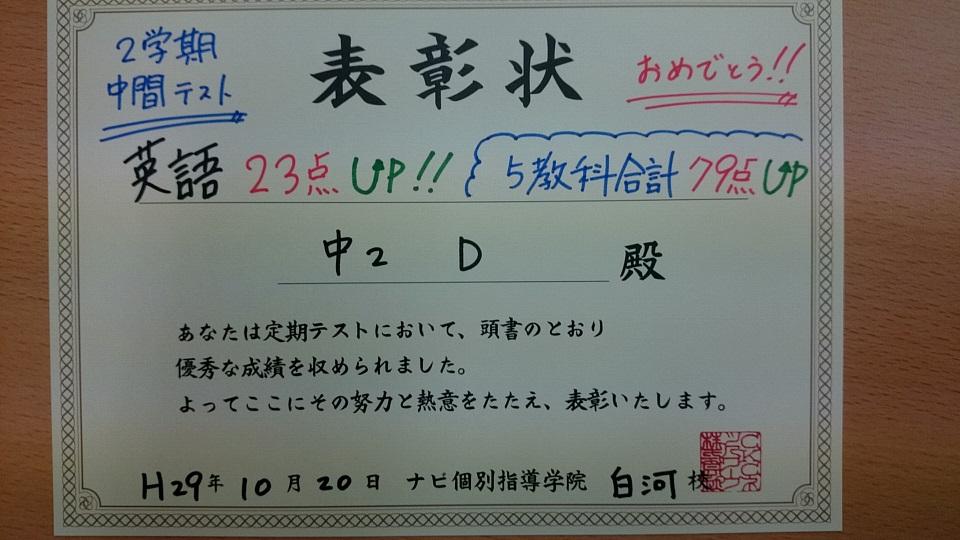 2学期
中間テスト
表彰状
おめでとう!!
英語 23点UP!! 5教科合計79点UP
中2 D 殿
あなたは定期テストにおいて、頭書のとおり
優秀な成績を収められました。
よってここにその努力と熱意をたたえ、表彰いたします。
H29年 10月 20日 ナビ個別指導学院 白河校